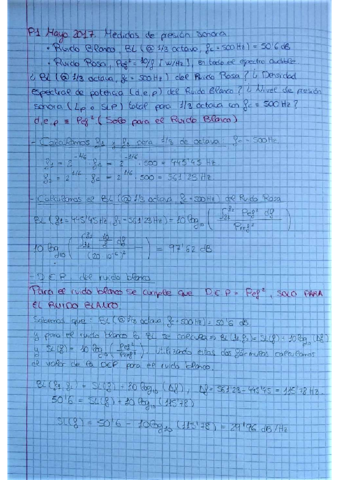 P1 Mayo 2017. Medidas de presión sonora
• Ruido Blanco, BL (@ 1/3 octava, fc = 500Hz) = 50'6 dB
• Ruido Rosa, Pef² = 10/f [W/Hz], en todo el espectro audible
¿ BL (@ 1/3 octava, fc = 500Hz) del Ruido Rosa? ¿ Densidad
Espectral de potencia (d.e.p) del Ruido Blanco? ¿ Nivel de presión
sonora (Lp = SPL) total para 1/3 octava con fc = 500 Hz?
d.e.p = Pef² (Solo para el Ruido Blanco)
- Calculamos f1 y f2 para 1/3 de octava, fc = 500Hz.
f1 = 2^-1/6 fc = 2^-1/6 · 500 = 445'45 Hz
f2 = 2^1/6 fc = 2^1/6 · 500 = 561'23 Hz
- Calculamos el BL (@ 1/3 octava, fc = 500Hz) del Ruido Rosa
BL (f1 = 445'45 Hz, f2 = 561'23 Hz) = 10 log
= 97'62 dB
- D.E.P. del ruido blanco
Para el ruido blanco se cumple que D.E.P = Pef², SOLO PARA
EL RUIDO BLANCO.
Sabemos que: BL (@ 1/3 octava, fc = 500Hz) = 50'6 dB
i) para el ruido blanco el BL se calcula: BL (f1, f2) = SL(f) + 10 log10 (Δf)
ii) SL(f) = 10 log Utilizando estas dos fórmulas calculamos
el valor de la DEP para el ruido blanco.
BL (f1, f2) = SL(f) + 10 log10 (Δf), Δf = 561'23 - 445'45 = 115'78 Hz
50'6 = SL(f) + 10 log10 (115'78)
SL(f) = 50'6 - 10 log10 (115'78) = 29'96 dB/Hz